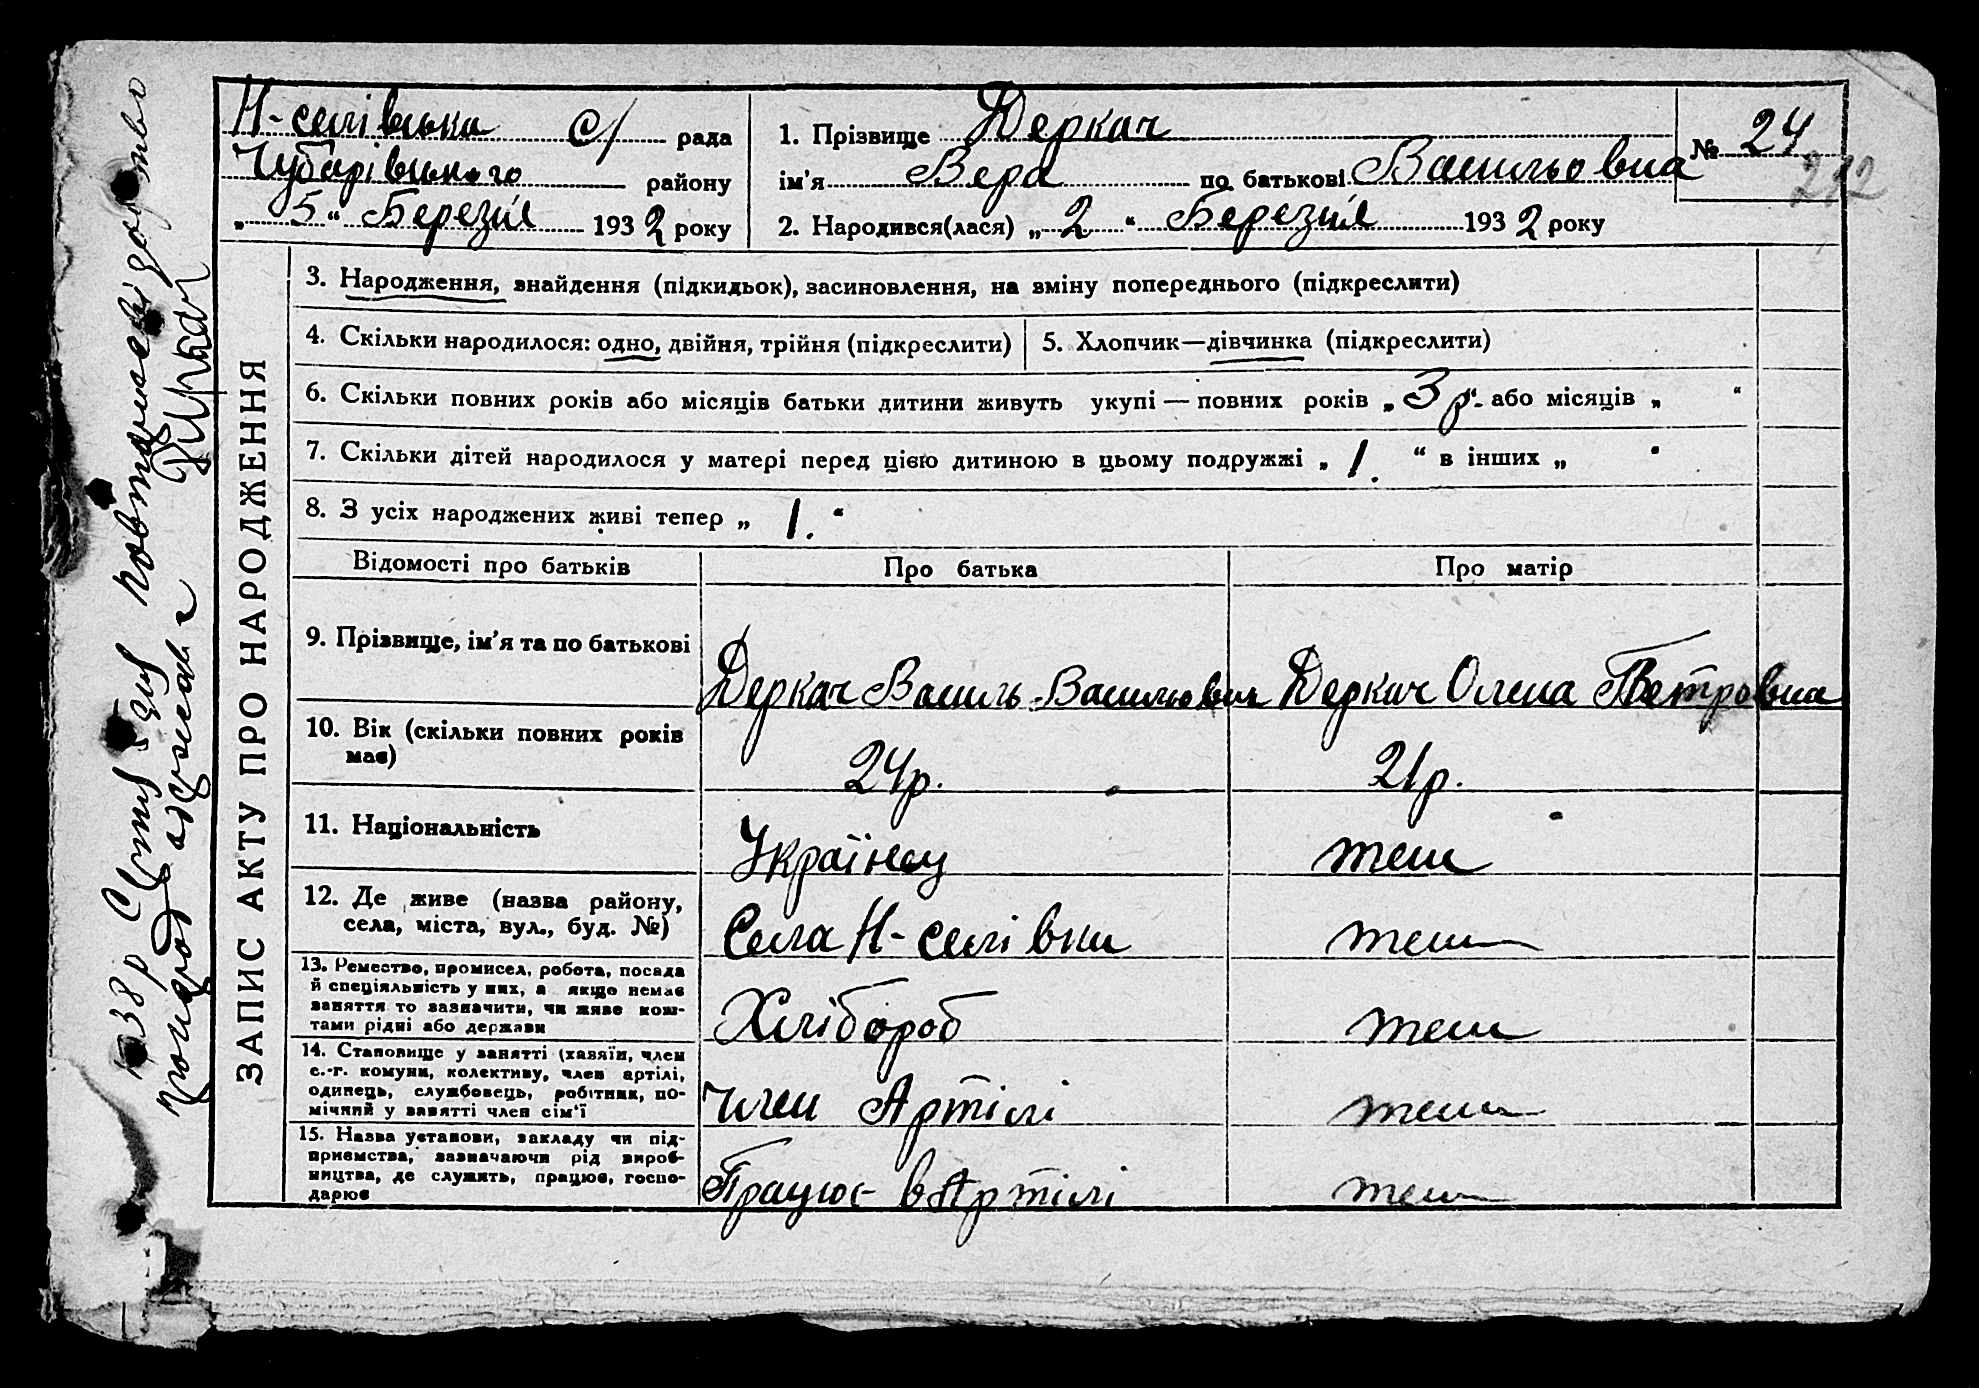 Н-селівська с/ рада
Чубарівського району
„ 5 “ Березня 1932 року
1. Прізвище Деркач
ім'я Вера по батькові Васильовна
№ 24
212
2. Народився(лася) „ 2 “ Березня 1932 року
ЗАПИС АКТУ ПРО НАРОДЖЕННЯ
3. Народження, знайдення (підкидьок), засиновлення, на зміну попереднього (підкреслити)
4. Скільки народилося: одно, двійня, трійня (підкреслити)
5. Хлопчик—дівчинка (підкреслити)
6. Скільки повних років або місяців батьки дитини живуть укупі — повних років „ 3 р. “ або місяців „ “
7. Скільки дітей народилося у матері перед цією дитиною в цьому подружжі „ 1. “ в інших „ “
8. З усіх народжених живі тепер „ 1. “
Відомості про батьків
Про батька
Про матір
9. Прізвище, ім'я та по батькові
Деркач Василь Васильович
Деркач Олена Петровна
10. Вік (скільки повних років
має)
24р.
21р.
11. Національність
Українец
теш
12. Де живе (назва району,
села, міста, вул., буд. №)
Села Н-селівки
теш
13. Ремество, промисел, робота, посада
й спеціяльність у них, а якщо немає
заняття то зазначити, чи живе кош-
тами рідні або держави
Хлібороб
теш
14. Становище у занятті (хазяїн, член
с.-г. комуни, колективу, член артілі,
одинець, службовець, робітник, по-
мічний у занятті член сім'ї
член Артілі
теш
15. Назва установи, закладу чи під-
приємства, зазначаючи рід вироб-
ництва, де служить, працює, госпо-
дарює
Працює в Артілі
теш